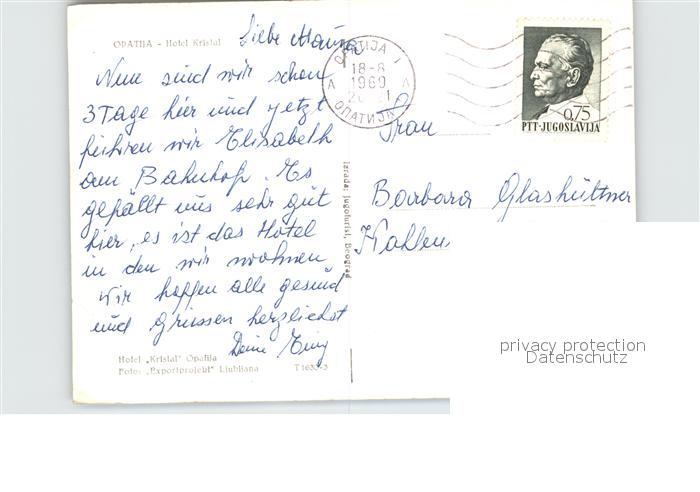 OPATIJA - Hotel Kristal
Liebe Mama
Nun sind wir schon
3 Tage hier und jetzt
führen wir Elisabeth
am Bahnhof. Es
gefällt uns sehr gut
hier, es ist das Hotel
in den wir wohnen
Wir hoffen alle gesund
und Grüssen herzlichst
Deine
Hotel „Kristal" Opatija
Foto: „Exportprojekt" Ljubljana T 1630-3
Izrada: Jugoturist, Beograd
OPATIJA 1
18-8
1969
A A
ОПАТИЈА
0,75
PTT-JUGOSLAVIJA
Frau
Barbara Glashüttner
privacy protection
Datenschutz